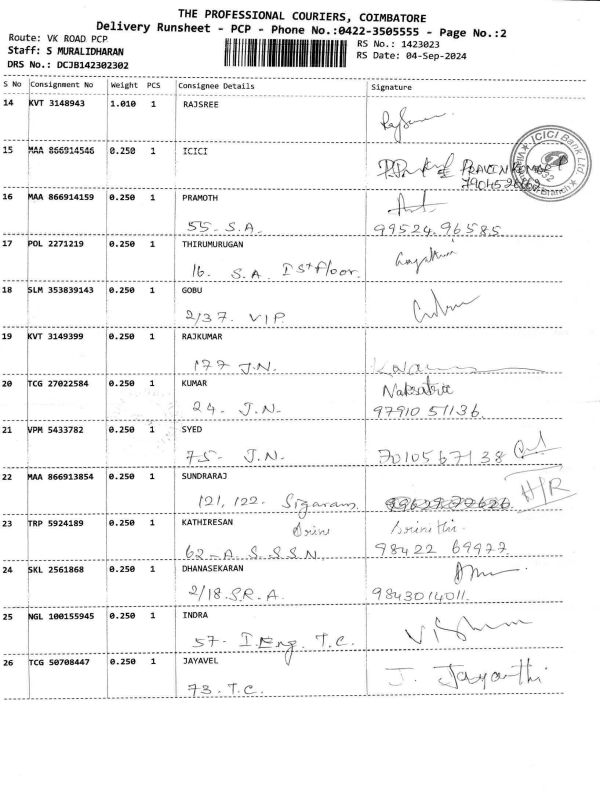 THE PROFESSIONAL COURIERS, COIMBATORE
Delivery Runsheet - PCP - Phone No.:0422-3505555 - Page No.:2
Route: VK ROAD PCP
RS No.: 1423023
Staff: S MURALIDHARAN
RS Date: 04-Sep-2024
DRS No.: DCJB142302302
S No Consignment No Weight PCS Consignee Details Signature
14 KVT 3148943 1.010 1 RAJSREE
15 MAA 866914546 0.250 1 ICICI
ICICI Bank Ltd
PRAVEEN KUMAR
16 MAA 866914159 0.250 1 PRAMOTH
55- S.A. 99524 96585
17 POL 2271219 0.250 1 THIRUMURUGAN
16. S.A. Ist Floor.
18 SLM 353839143 0.250 1 GOBU
2/37. VIP
19 KVT 3149399 0.250 1 RAJKUMAR
177 J.N.
20 TCG 27022584 0.250 1 KUMAR
24- J.N- 97910 51136
21 VPM 5433782 0.250 1 SYED
75- J.N. 7010567138
22 MAA 866913854 0.250 1 SUNDRARAJ
H/R
121, 122. Sigaram
23 TRP 5924189 0.250 1 KATHIRESAN
62-A S.S.S.N. 98422 69977
24 SKL 2561868 0.250 1 DHANASEKARAN
2/18.S.R.A. 9843014011.
25 NGL 100155945 0.250 1 INDRA
57- I.Eng. T.C.
26 TCG 50708447 0.250 1 JAYAVEL
73. T.C. J. Jayanthi